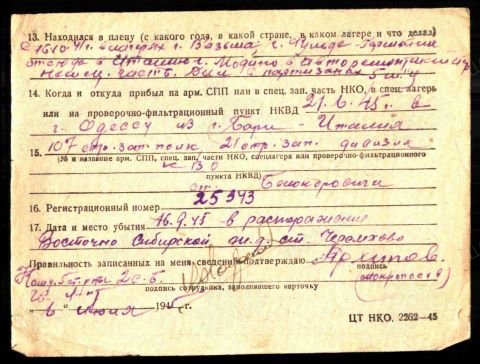 13. Находился в плену (с какого года, в какой стране, в каком лагере и что делал)
с 1610 41г в лагерях г. Вязьма, г. Фульде-Германия
отсюда в Италию г. Модано в авторемонтный
немец. часть. Был в партизанах 5 м-ц
14. Когда и откуда прибыл на арм. СПП или в спец. зап. часть НКО, в спец. лагерь
или на проверочно-фильтрационный пункт НКВД 21.6.45г. в
г. Одессу из г. Бари - Италия
15. 107 стр. зап. полк 21 стр. зап. дивизия
(№ и название арм. СПП, спец. зап. части НКО, спецлагеря или проверочно-фильтрационного
пункта НКВД)
к В О
ст.
16. Регистрационный номер 25343
17. Дата и место убытия 16.9.45 в распоряжение
Восточно Сибирской ж.д. ст. Черемхово
Правильность записанных на меня сведений подтверждаю Архипов.
подпись
подпись сотрудника, заполнявшего карточку
„ 26 " июля 1945 г.
ЦТ НКО. 2262—45